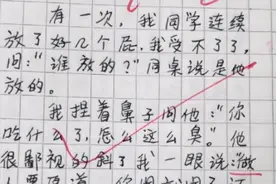 有一次，我同学连续
放了好几个屁，我受不了了，
问："谁放的？"同桌说是他
放的。
我捏着鼻子问他："你
吃什么了，怎么这么臭。"他
很鄙视的斜了我一眼说："做